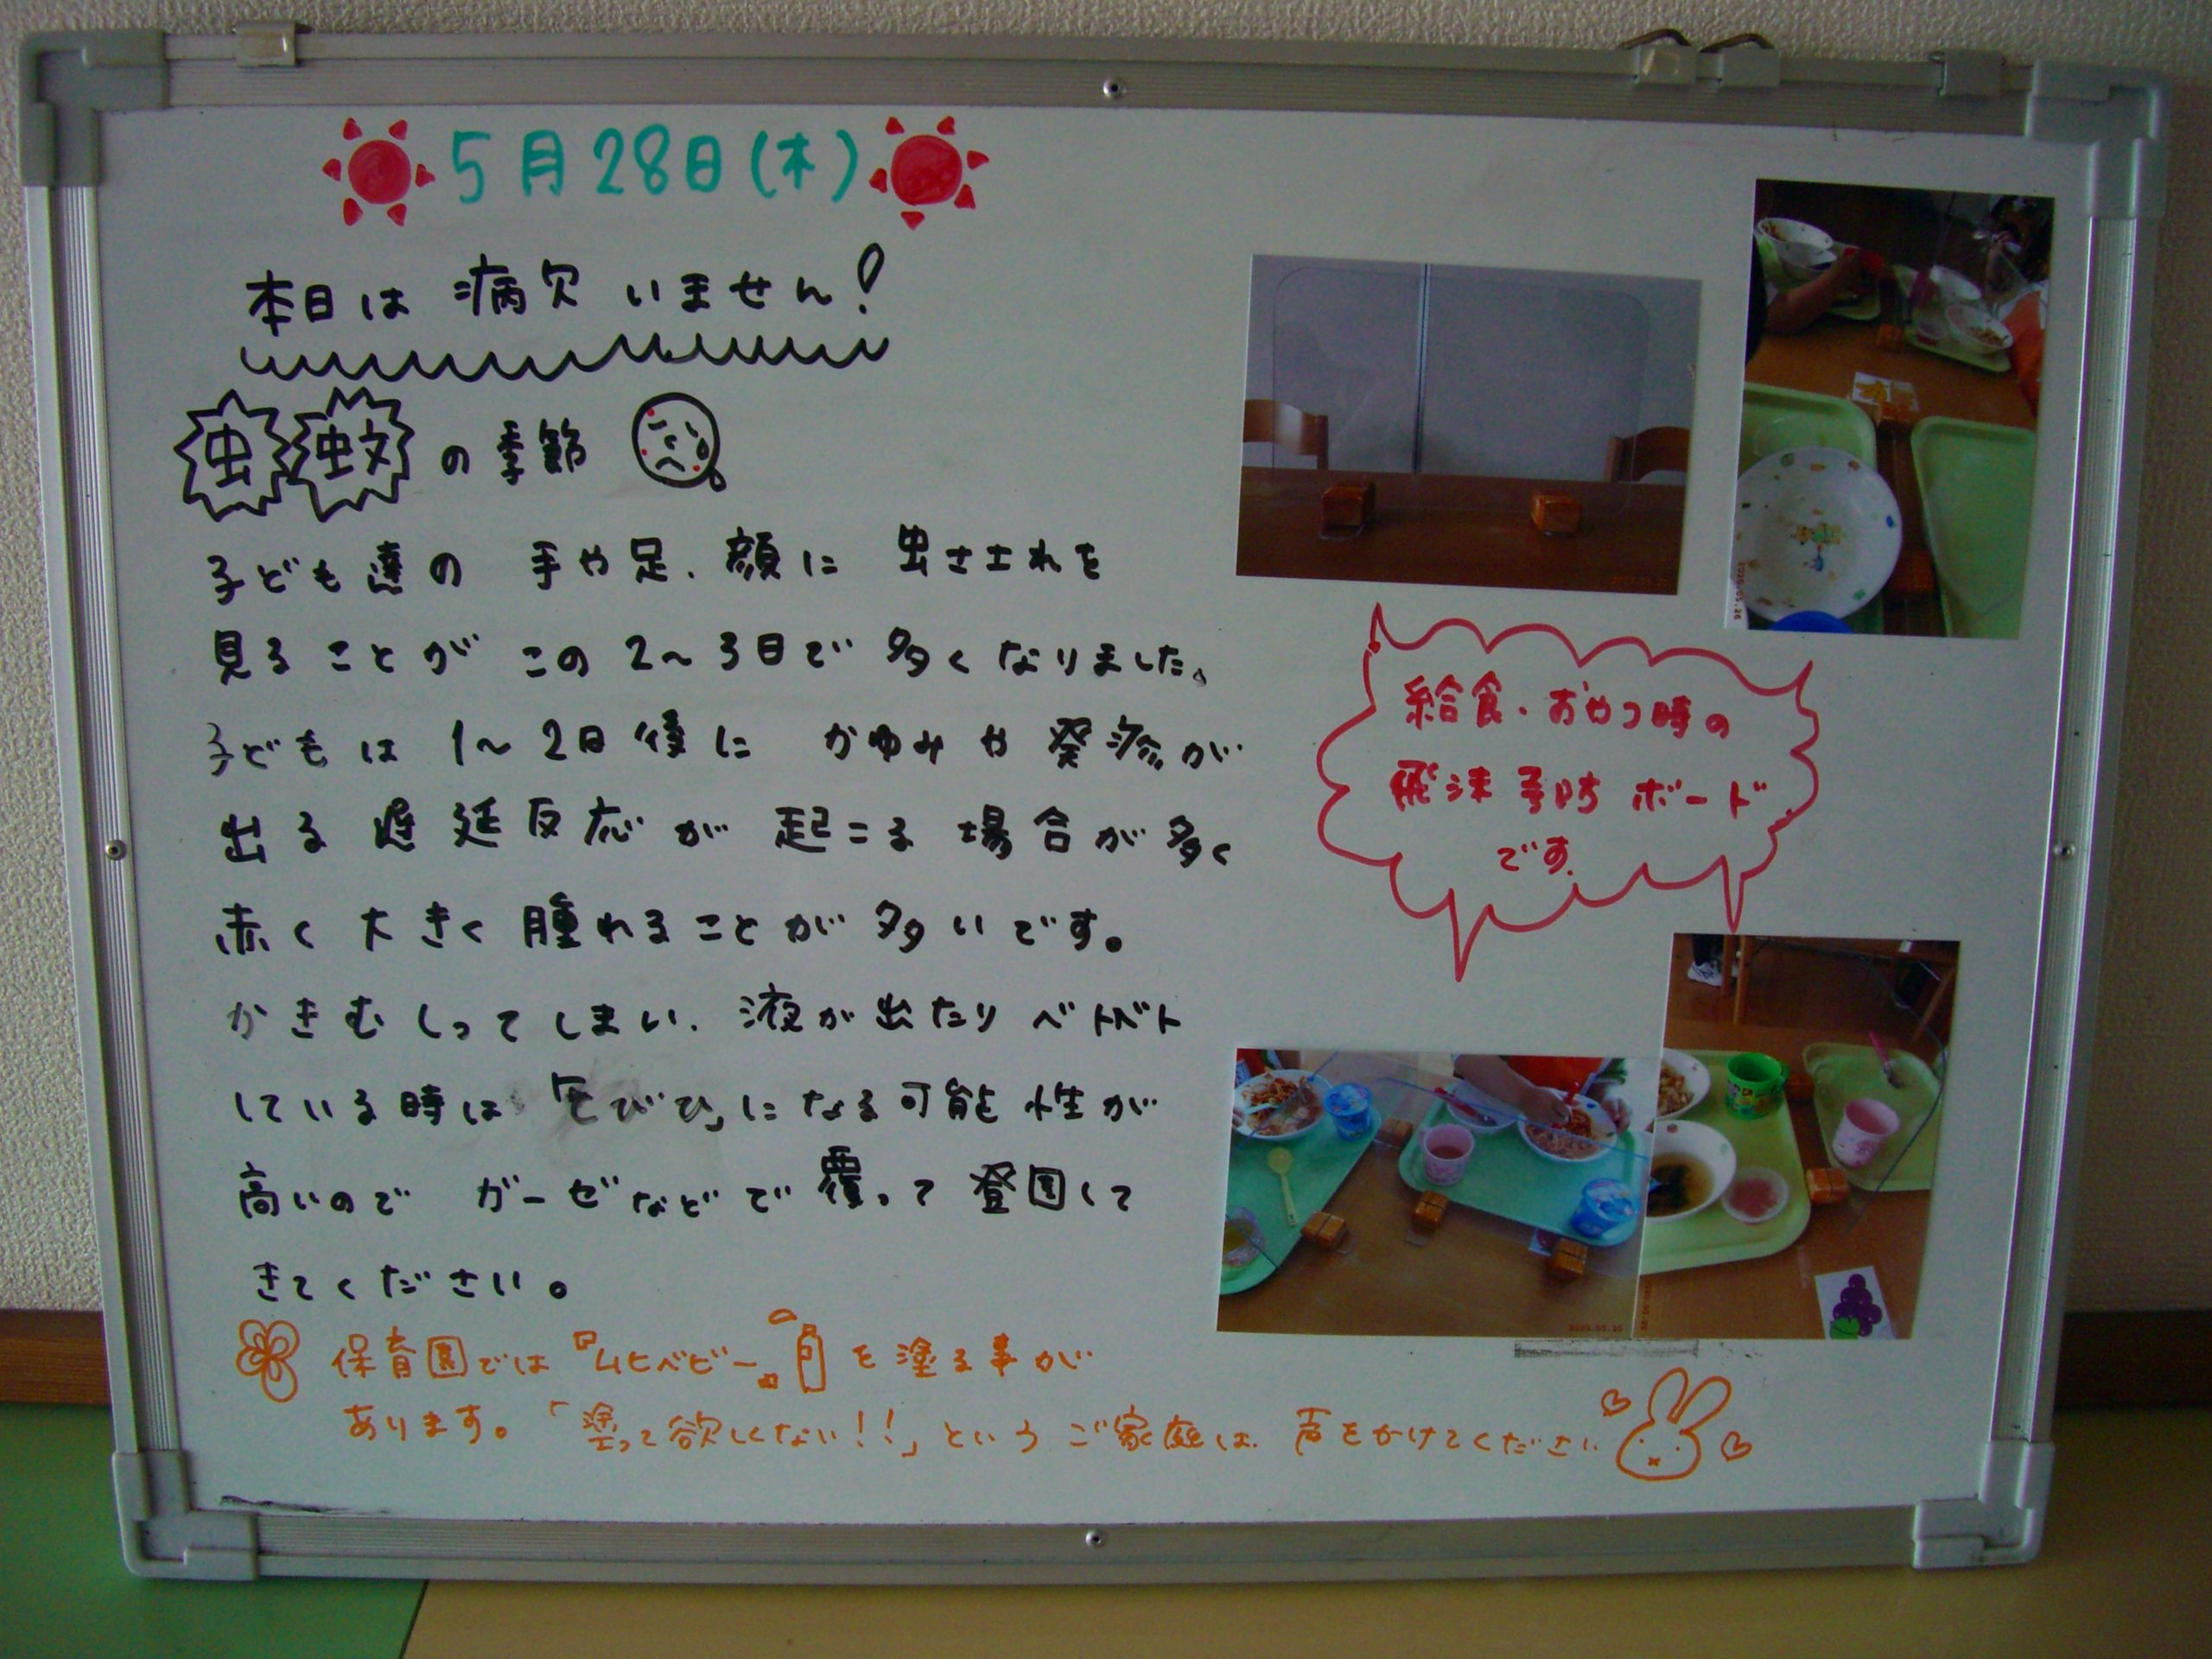 5月28日(木)
本日は 病欠 いません!
虫 蚊 の 季節
子ども達の 手や足、顔に 虫さされを
見ることが この2〜3日で 多くなりました。
子どもは 1〜2日後に かゆみや 発疹が
出る 遅延反応が 起こる 場合が多く
赤く 大きく 腫れることが 多いです。
かきむしってしまい、液が出たり ベトベト
している時は「とびひ」になる可能性が
高いので ガーゼなどで 覆って 登園して
きてください。
保育園では『ムヒベビー』を塗る事が
あります。「塗って欲しくない!!」という ご家庭は 声をかけてください
給食・おやつ時の
飛沫予防ボード
です。